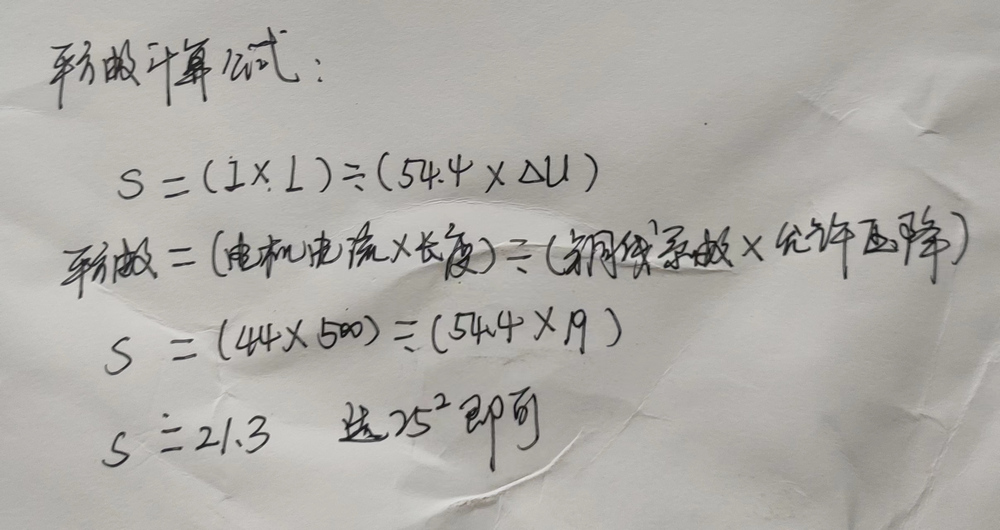 平方数计算公式:
S=(I×L)÷(54.4×△U)
平方数=(电机电流×长度)÷(铜线系数×允许压降)
S =(44×500)÷(54.4×19)
S ≐21.3 选25² 即可